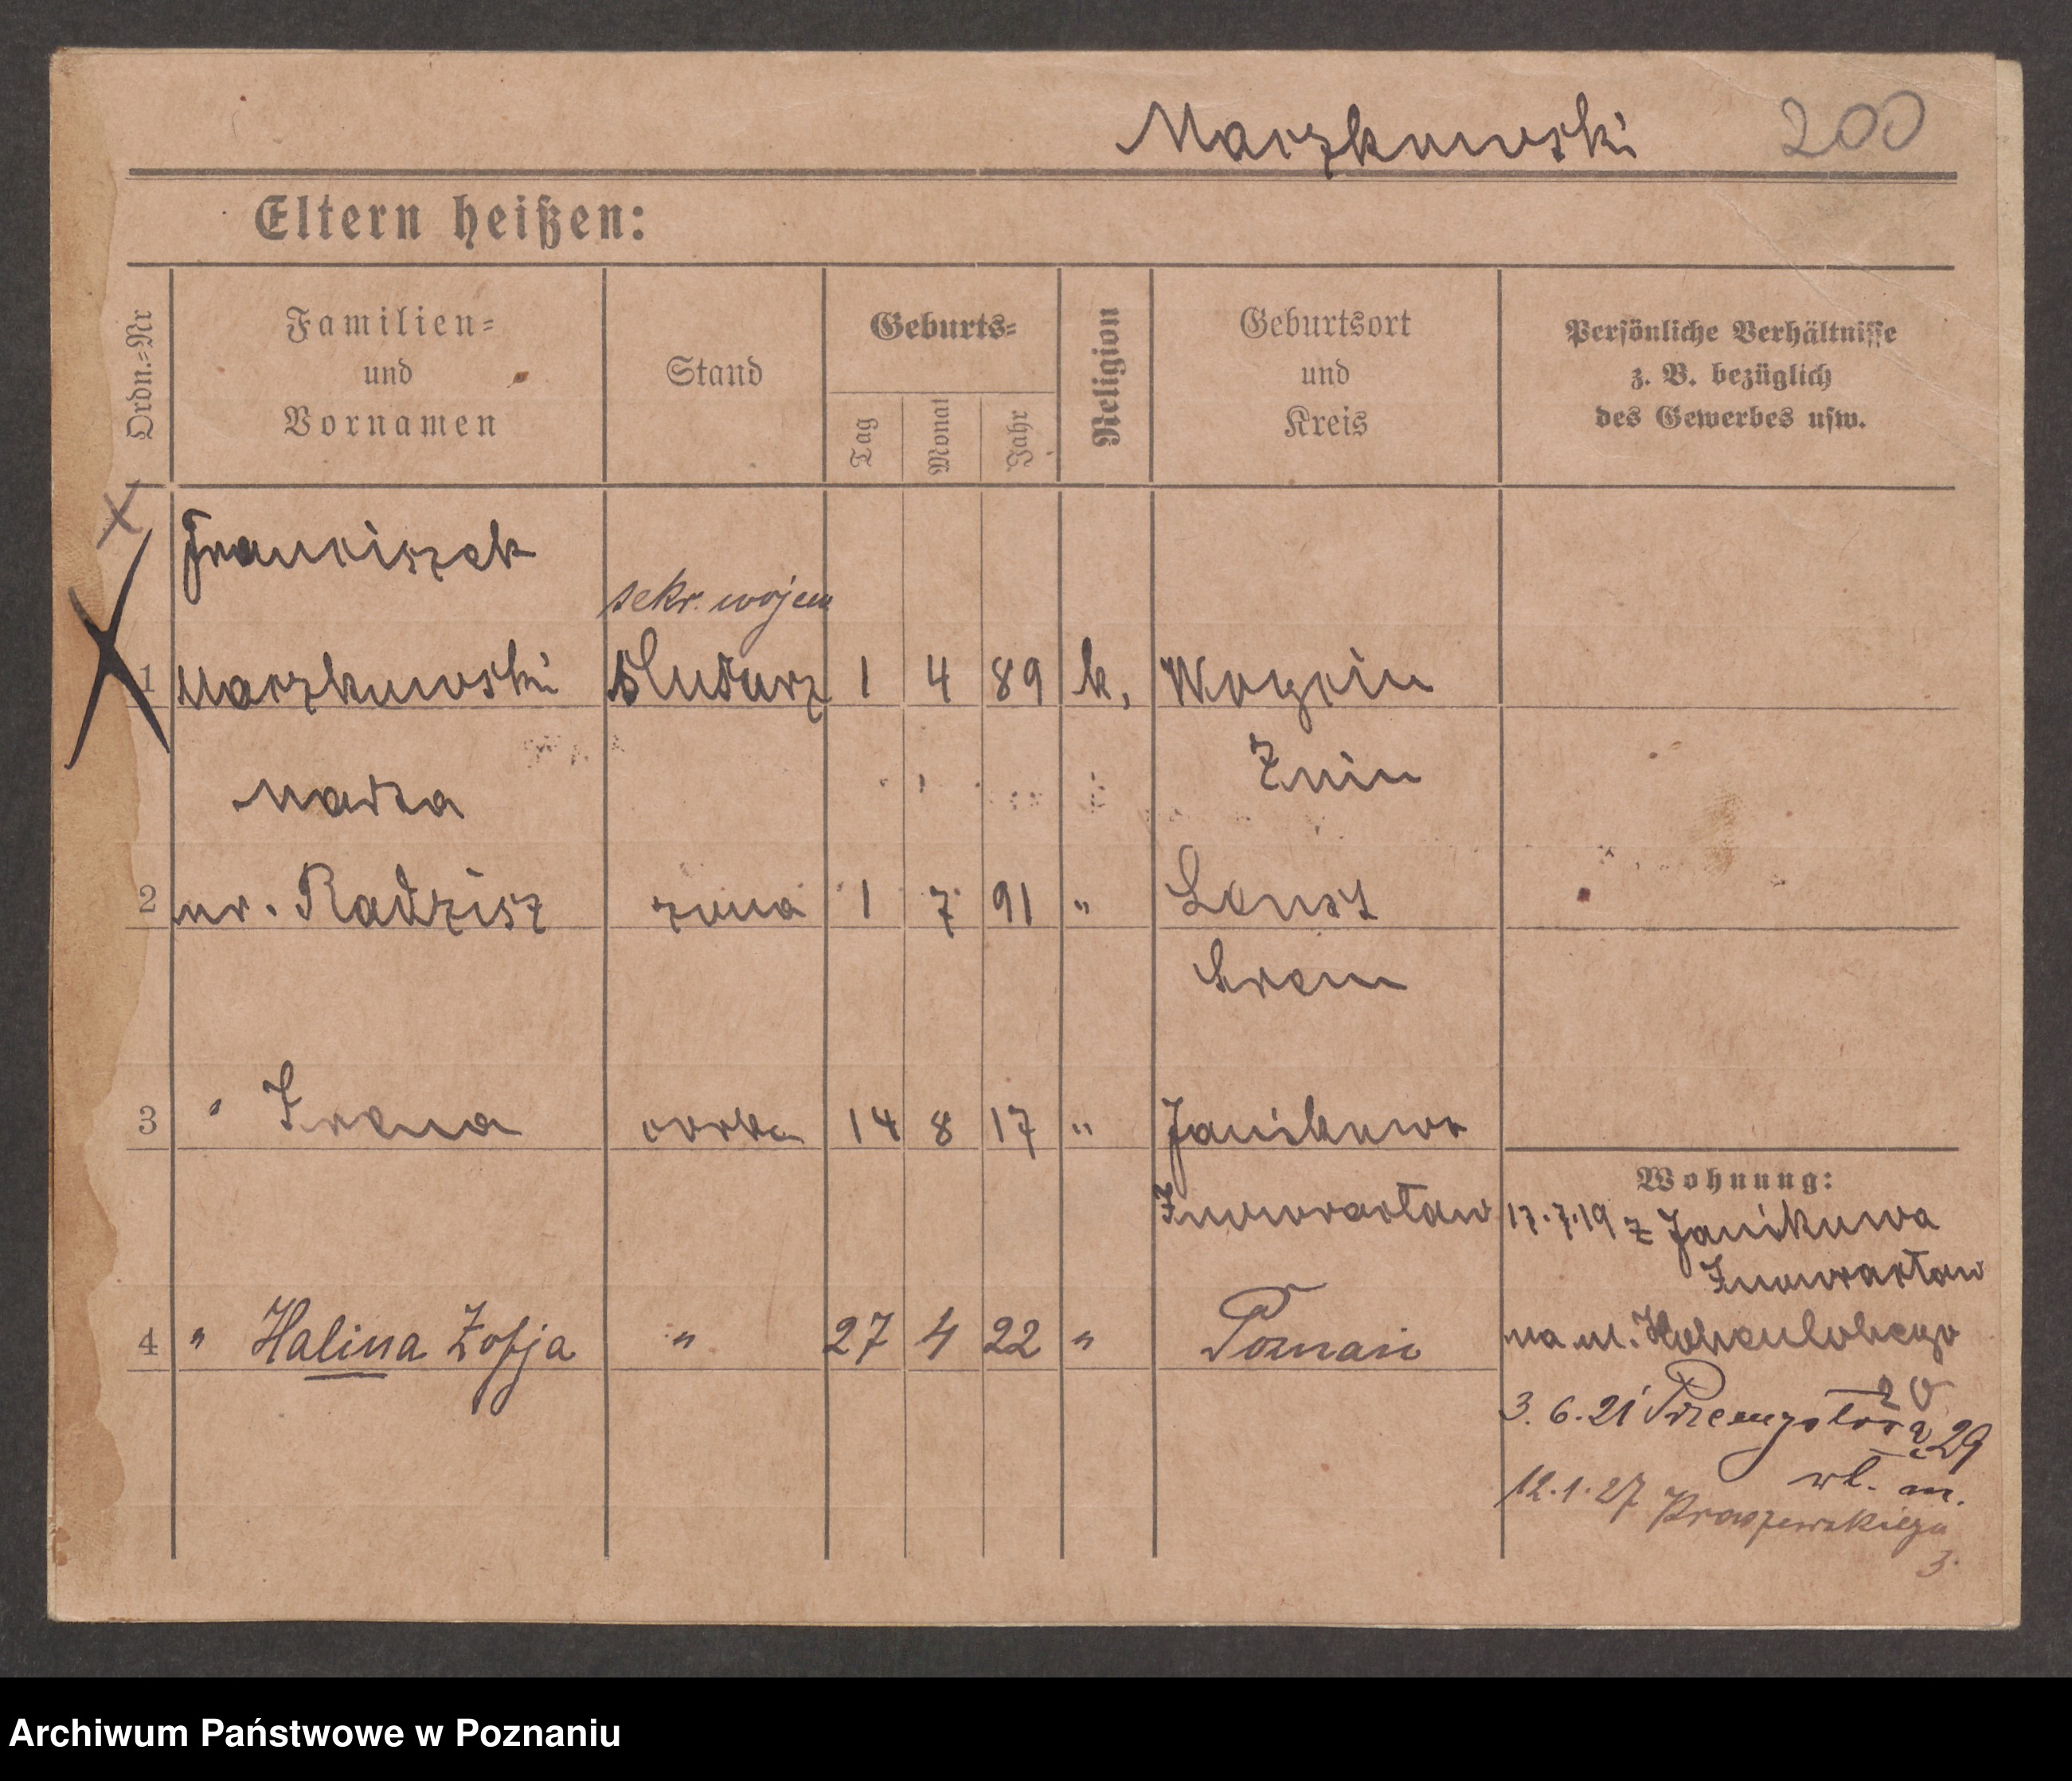 Marzkowski 200
Eltern heißen:
Ordn.=Nr
Familien=
und
Vornamen
Stand
Geburts=
Tag
Monat
Jahr
Religion
Geburtsort
und
Kreis
Persönliche Verhältnisse
z. B. bezüglich
des Gewerbes usw.
Franciszek
sekr. wojew
1 Marzkowski 1 4 89 k,
Żnin
2 ur. Radzisz żona 1 7 91 "
Śrem
3 " Irena córka 14 8 17 " Janikowo
Wohnung:
Inowrocław 17.7.19 z Janikowa
Inowrocław
4 " Halina Zofja " 27 4 22 " Poznań na ul. Hohenlohego
20
3. 6. 21 Przemysłowa 29
wł. m.
12.1.27 Kraszewskiego
3.
Archiwum Państwowe w Poznaniu